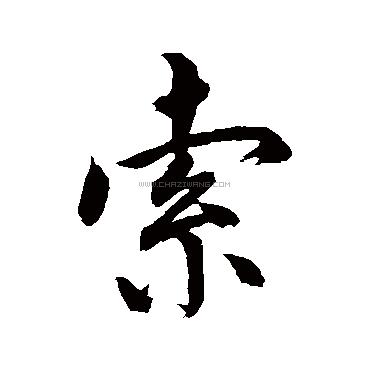 索
WWW.CHAZIWANG.COM